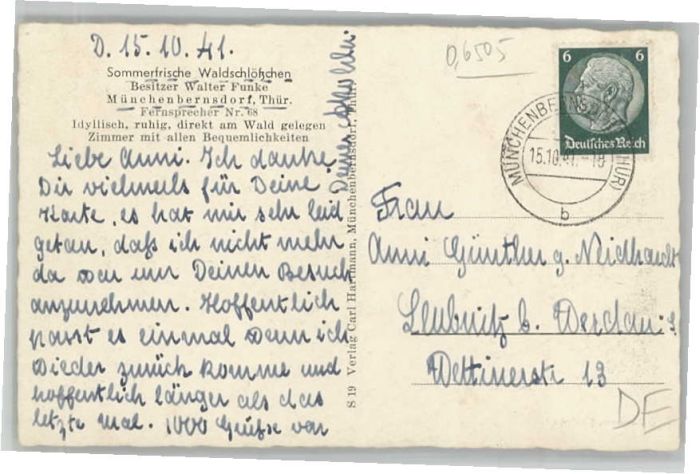 D. 15.10.41.
Sommerfrische Waldschlößchen
Besitzer Walter Funke
Münchenbernsdorf, Thür.
Fernsprecher Nr. 68
Idyllisch, ruhig, direkt am Wald gelegen
Zimmer mit allen Bequemlichkeiten
Liebe Anni. Ich danke
Dir vielmals für Deine
Karte, es hat mir sehr leid
getan, daß ich nicht mehr
da war um Deinen Besuch
anzunehmen. Hoffentlich
passt es einmal wenn ich
wieder zurück komme und
hoffentlich länger als das
letzte Mal. 1000 Grüße von
Deiner
S 19 Verlag Carl Hartmann, Münchenbernsdorf, Thür.
0,6505
6 6
Deutsches Reich
MÜNCHENBERNSDORF (THÜR)
15.10.41.-18
b
Frau
Anni Günther g. Neidhardt
Leubnitz b. Werdau i. S.
Wettinerstr 13
DE